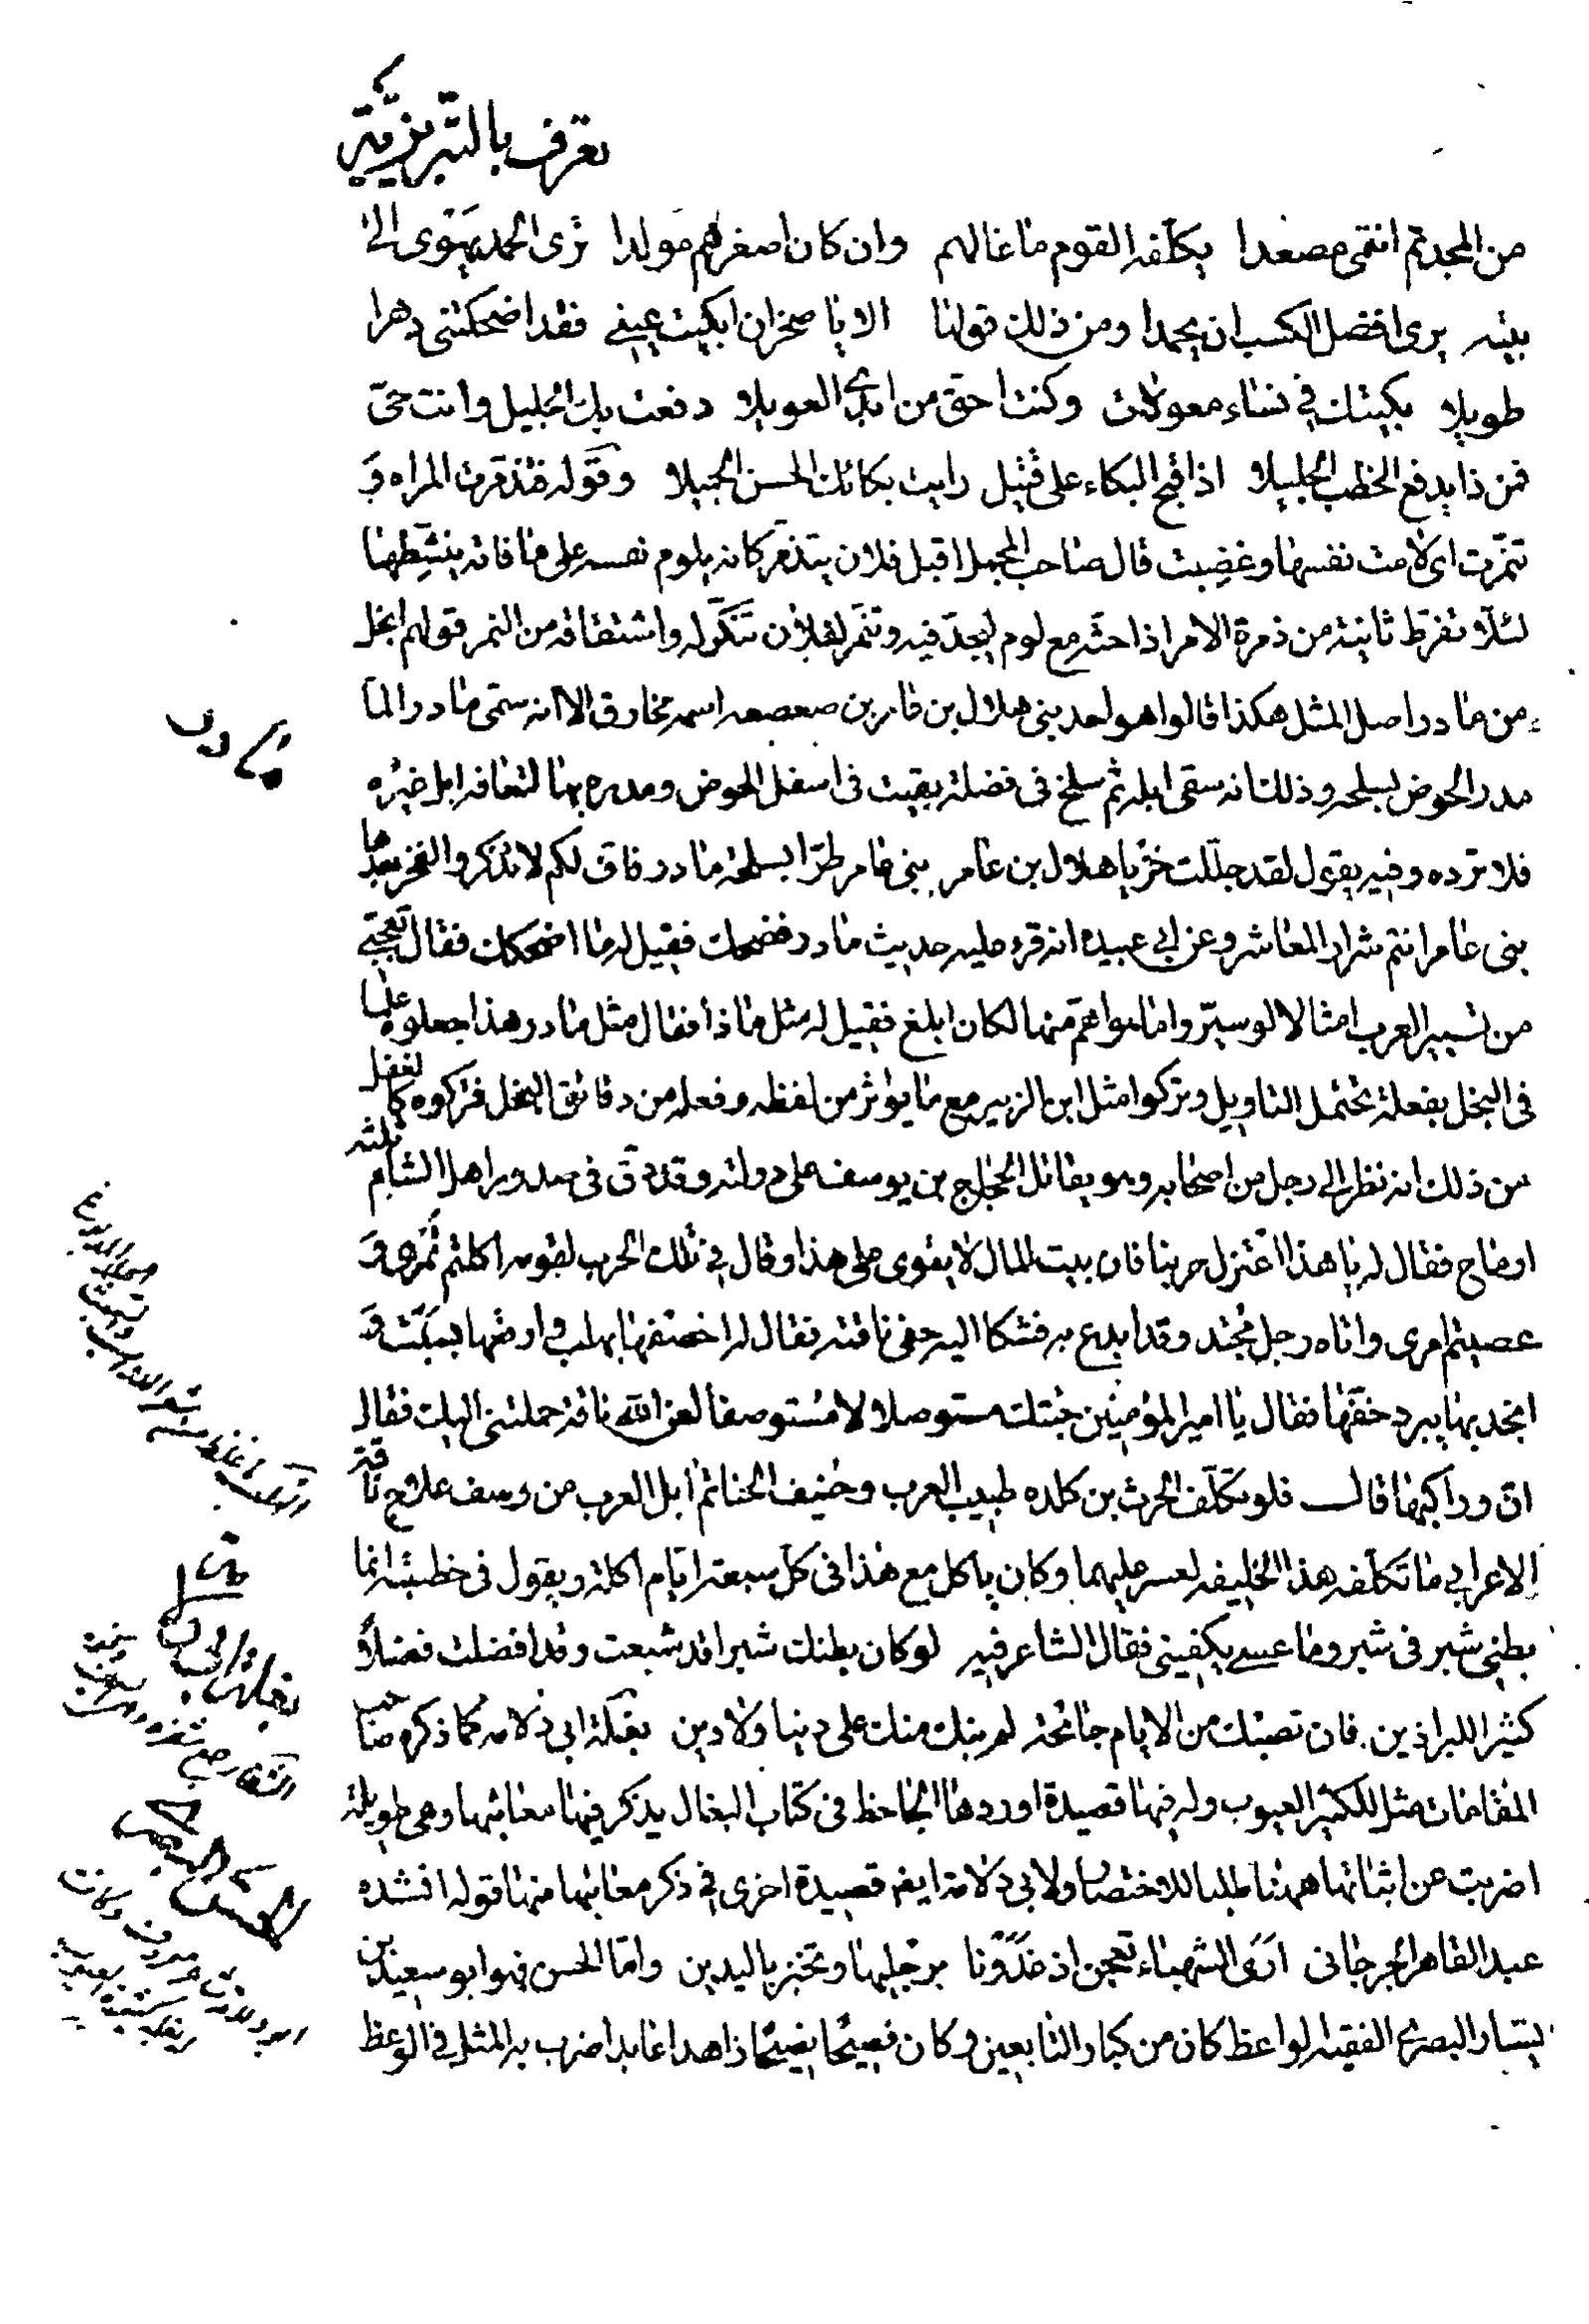 تعرف بالتبريزية
من المجد ثم انتمى مصعدا يكلفه القوم ما غالهم وان كان اصغرهم مولدا ترى الحمد يهوى الى
بيته يرى افضل الكسب ان يحمدا ومن ذلك قولها الا يا صخر ان ابكيت عينى فقد اضحكتنى دهرا
طويلا بكيتك فى نساء معولات وكنت احق من ابدى العويلا دفعت بك الجليل وانت حى
فمن ذا يدفع الخطب الجليلا اذا قبح البكاء على قتيل رايت بكائك الحسن الجميلا وقوله فتذمرت المراه و
تنمرت اى لامت نفسها وغضبت قال صاحب المجمل اقبل فلان يتذمر كانه يلوم نفسه على ما فاته ينشطها
لئلا تفرط ثانية من ذمرة الامر اذا حثه مع لوم ليجد فيه وتنمر لفلان تنكر له واشتقاقه من النمر قولهم ابخل
من مادر اصل المثل هكذا قالوا هو احد بنى هلال بن عامر بن صعصعه اسمه مخارق الا انه سمى مادر لما
مدر الحوض بسلحه وذلك انه سقى ابله ثم سلح فى فضلة بقيت فى اسفل الحوض ومدره بها لتعافه ابل غيره
فلا ترده وفيه يقول لقد جللت خزيا هلال بن عامر بنى عامر طرا بسلحة مادر فاف لكم لا تذكروا الفخر بعدها
بنى عامر انتم شرار المعاشر وعن ابى عبيده انه قرء عليه حديث مادر فضحك فقيل له ما اضحكك فقال تعجبى
من تسيير العرب امثالا لو سيروا ما هو اهم منها لكان ابلغ فقيل له مثل ماذا فقال مثل مادر هذا جعلوه علما
فى البخل بفعلة تحتمل التاويل وتركوا مثل ابن الزبير مع ما يؤثر من لفظه وفعله من دقائق البخل فتركوه كالغفل
من ذلك انه نظر الى رجل من اصحابه وهو يقاتل الحجاج بن يوسف على دولته وقد دق فى صدور اهل الشام ثلثه
ارماح فقال له يا هذا اعتزل حربنا فان بيت المال لا يقوى على هذا وقال فى تلك الحرب لقومه اكلتم تمرى و
عصيتم امرى واتاه رجل مجتد وقد ابدع به فشكا اليه حفى ناقته فقال له اخصفها بهلب و ارقعها بسبت و
انجد بها يبرد خفها فقال يا امير المؤمنين جئتك مستوصلا لا مستوصفا لعن الله ناقة حملتنى اليك فقال
ان وراكبها قال فلو تكلف الحرث بن كلده طبيب العرب وحنيف الحناتم ابل العرب من وصف علاج ناقة
الاعرابى ما تكلفه هذا الخليفه لعسر عليهما وكان ياكل مع هذا فى كل سبعة ايام اكلة ويقول فى خطبته انما
بطنى شبر فى شبر وما عسى يكفينى فقال الشاعر فيه لو كان بطنك شبرا قد شبعت وقد افضلت فضلا
كثيرا للبراذين فان تصبك من الايام جائحة لم نبك منك على دنيا ولا دين بغلة ابى دلامه كما ذكره صاحب
المقامات مثل للكثير العيوب وله فيها قصيدة اوردها الجاحظ فى كتاب البغال يذكر فيها معائبها وهى طويلة
اضربت عن اثباتها ههنا طلبا للاختصار ولابى دلامة ايضا قصيدة اخرى فى ذكر معائبها منها قوله انشده
عبد القاهر الجرجانى ارى الشهباء تعجن اذ غدونا برجليها وتخبز باليدين واما الحسن فهو ابو سعيد بن
يسار البصرى الفقيه الواعظ كان من كبار التابعين وكان فصيحا زاهدا عابدا ضرب به المثل فى الوعظ
مادر
بغلة ابى